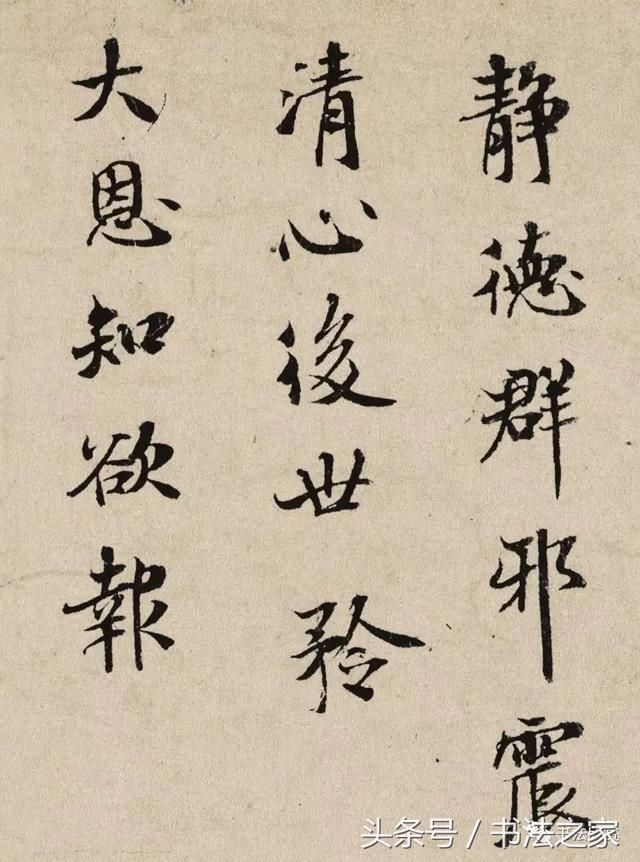 静德群邪震
清心後世矜
大恩知欲報
头条号／书法之家